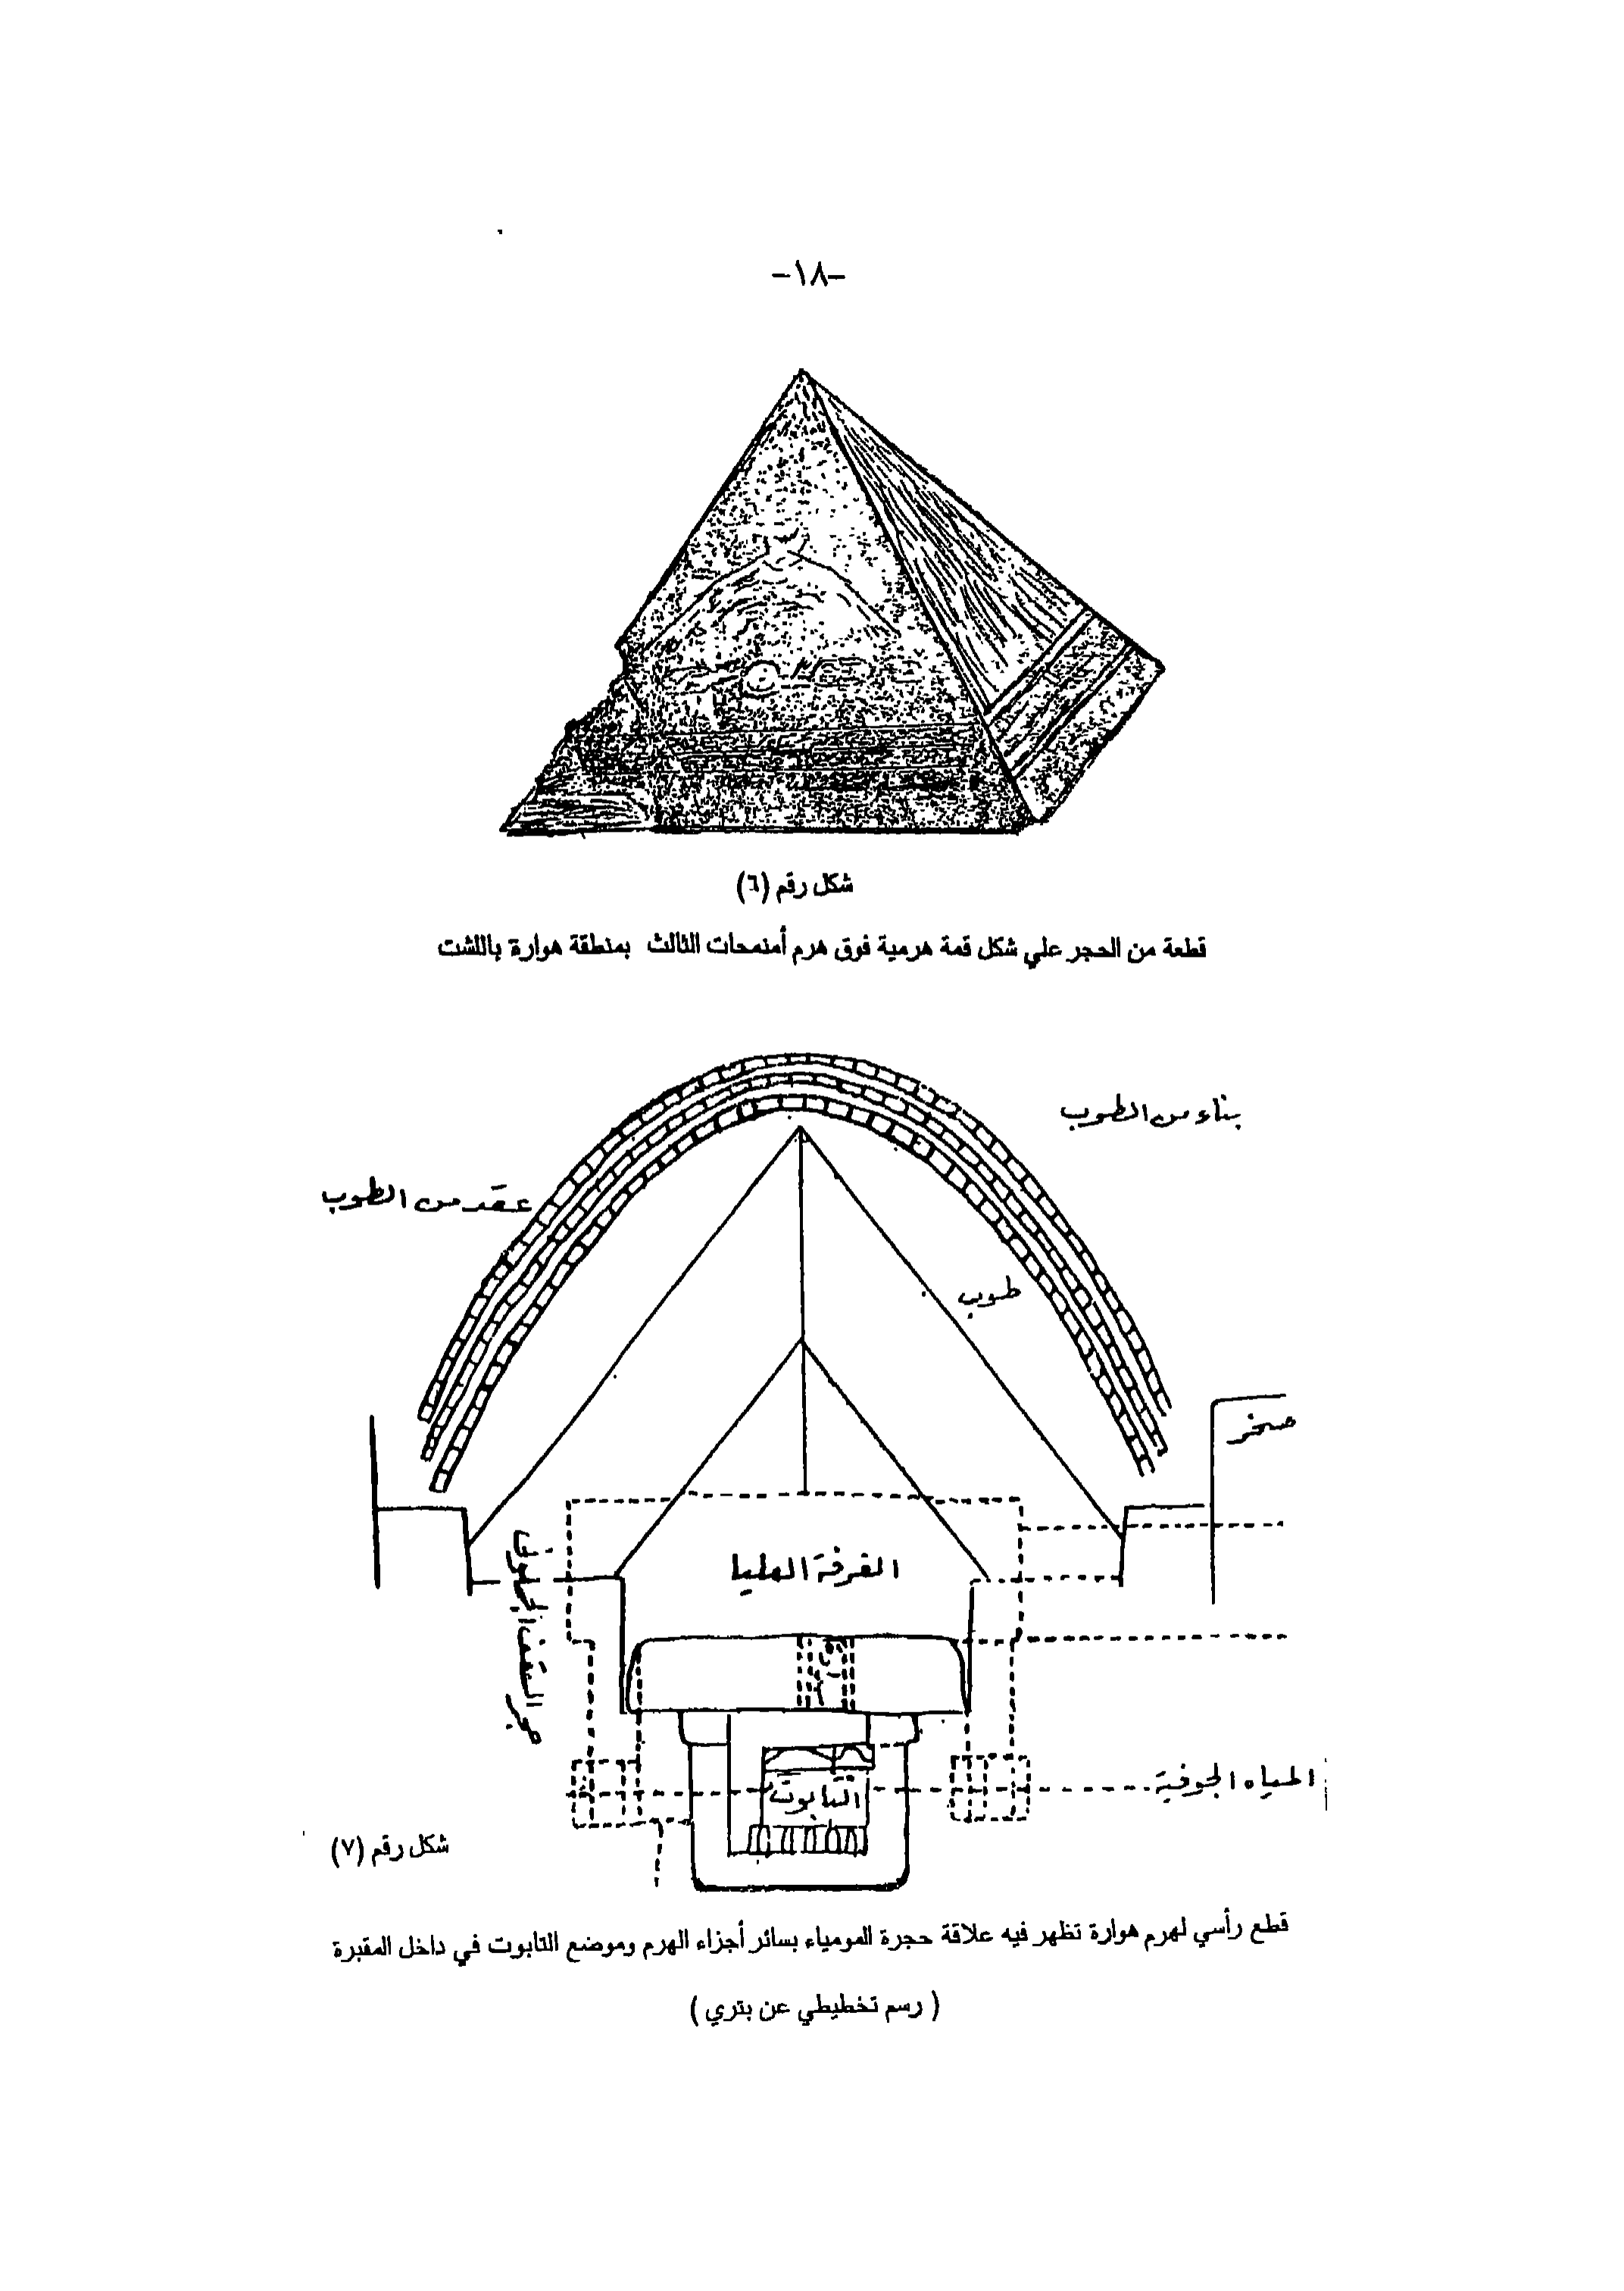 -١٨-
شكل رقم (٦)
قطعة من الحجر علي شكل قمة هرمية فوق هرم أمنمحات الثالث بمنطقة هوارة باللشت
بناء من الطوب
عقد من الطوب
طوب
صخر
الغرفة العليا
حجر السقف
التابوت
المياه الجوفية
شكل رقم (٧)
قطع رأسي لهرم هوارة تظهر فيه علاقة حجرة المومياء بسائر أجزاء الهرم وموضع التابوت في داخل المقبرة
( رسم تخطيطي عن بتري )